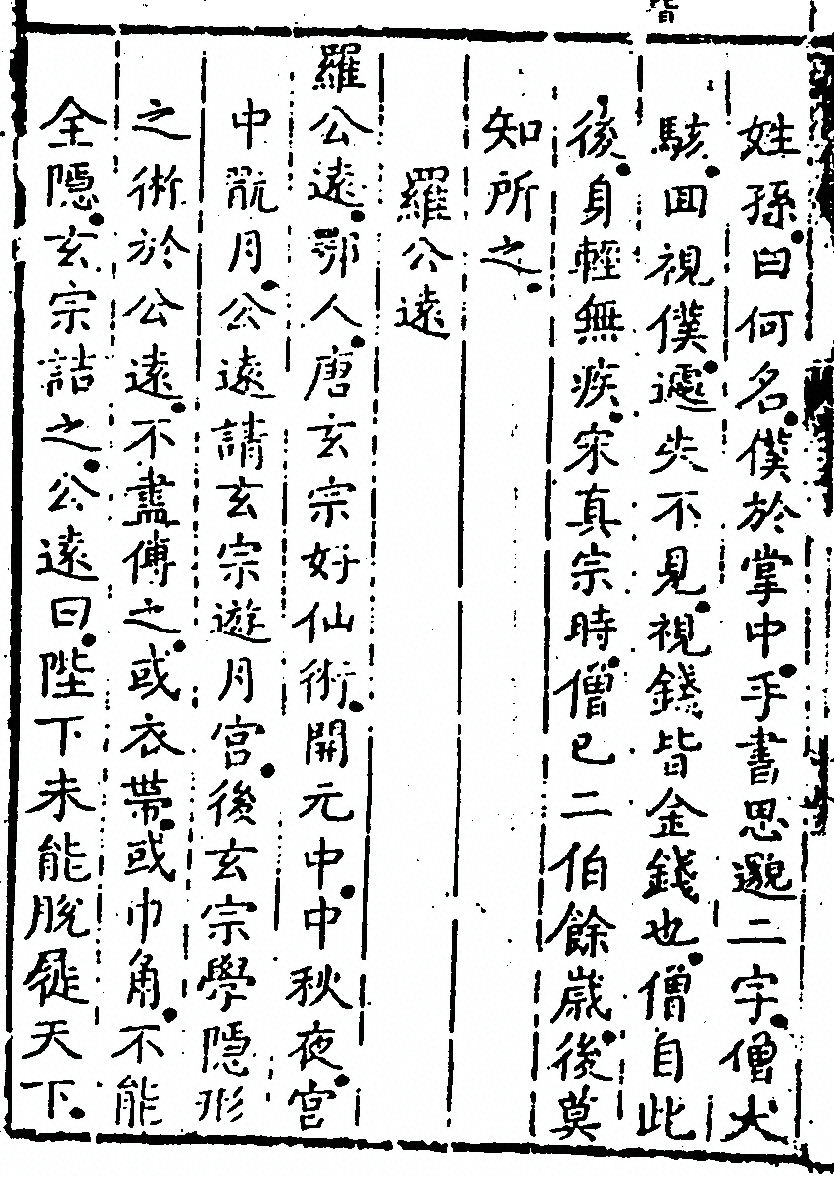 姓孫曰何名僕於掌中手書思邈二字僧大
駭回視僕遽失不見視錢皆金錢也僧自此
後身輕無疾宋真宗時僧已二伯餘歲後莫
知所之
羅公遠
羅公遠鄂人唐玄宗好仙術開元中中秋夜宮
中翫月公遠請玄宗遊月宮後玄宗學隱形
之術於公遠不盡傳之或衣帶或巾角不能
全隱玄宗詰之公遠曰陛下未能脫屣天下